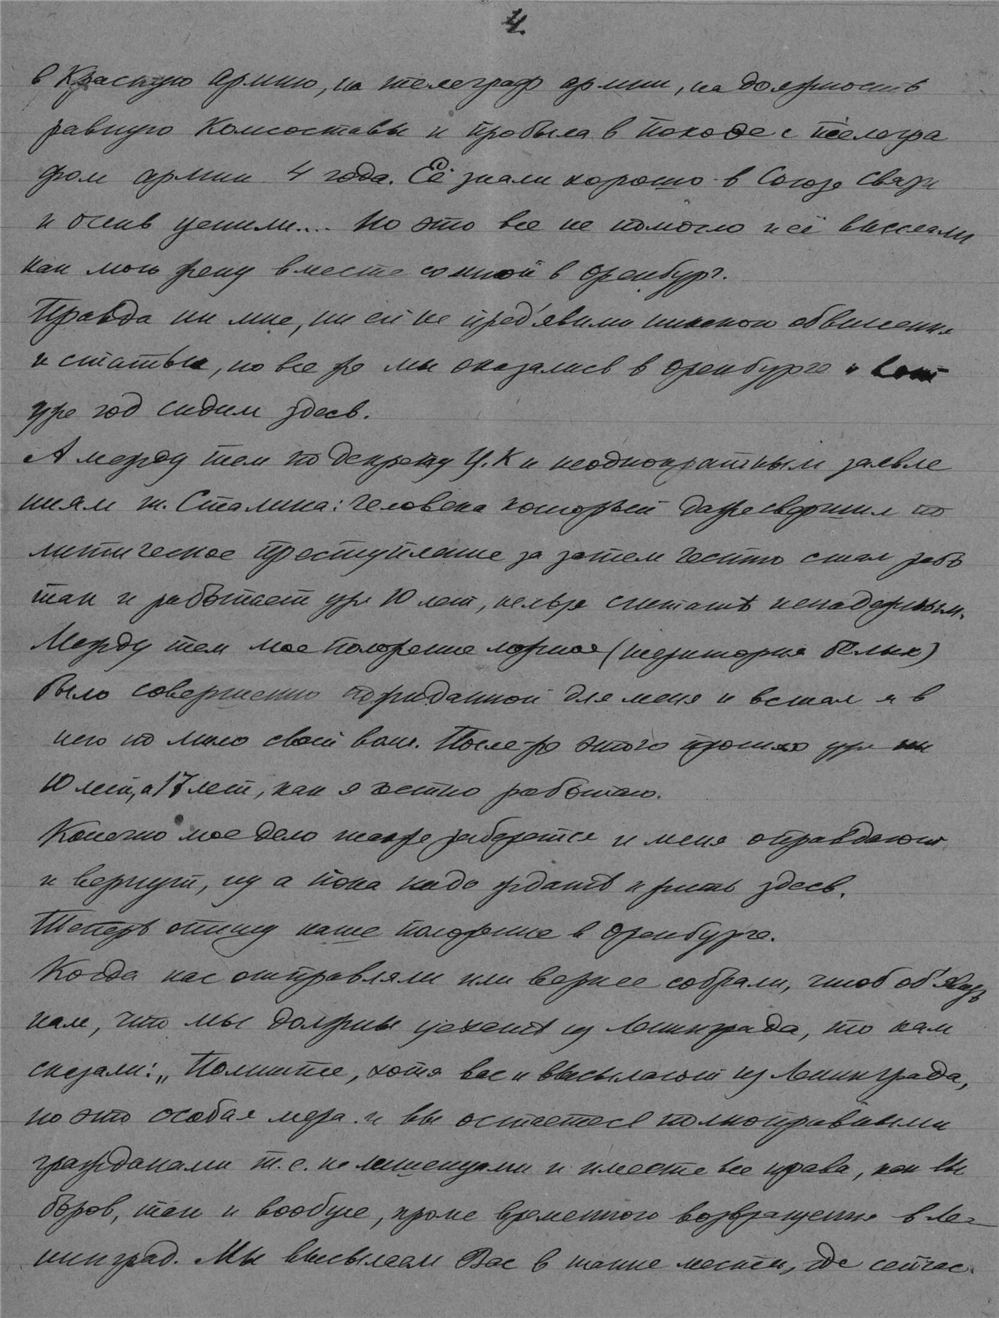 4.
в Красную армию, на телеграф армии, на должность
равную Комсостава и пробыла в походе с телегра
фом армии 4 года. Её знали хорошо в Союзе Связи
и очень ценили.... Но это все не помогло и её выслали
как мою жену вместе со мной в Оренбург.
Правда ни мне, ни ей не пред'явили никакого обвинения
и статьи, но все же мы оказались в Оренбурге и вот
уже год сидим здесь.
А между тем по декрету Ц.К и неоднократным заявле
ниям т. Сталина: человека который даже свершил по
литическое преступление за затем честно стал рабо
тать и работает уже 10 лет, нельзя считать ненадежным.
Между тем мое положение (территория белых)
было совершенно неожиданной для меня и встал я в
него по мимо своей воли. После же этого прошло уже не
10 лет, а 17 лет, как я честно работаю.
Конечно мое дело тоже разберется и меня оправдают
и вернут, ну а пока надо ждать и жить здесь.
Теперь опишу наше положение в Оренбурге.
Когда нас отправляли или вернее собрали, чтоб об'явить
нам, что мы должны уехать из Ленинграда, то нам
сказали: „Помните, хотя вас и высылают из Ленинграда,
но это особая мера и вы остаетесь полноправными
гражданами т.е. не лишенцами и имеете все права, как вы
боров, так и вообще, кроме временного возвращения в Ле-
нинград. Мы высылаем Вас в такие места, где сейчас